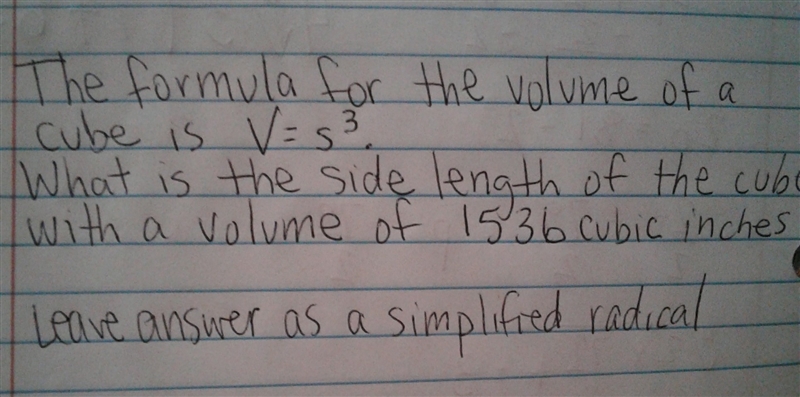 The formula for the volume of a
cube is V=s³.
What is the side length of the cube
with a volume of 1536 cubic inches
Leave answer as a simplified radical